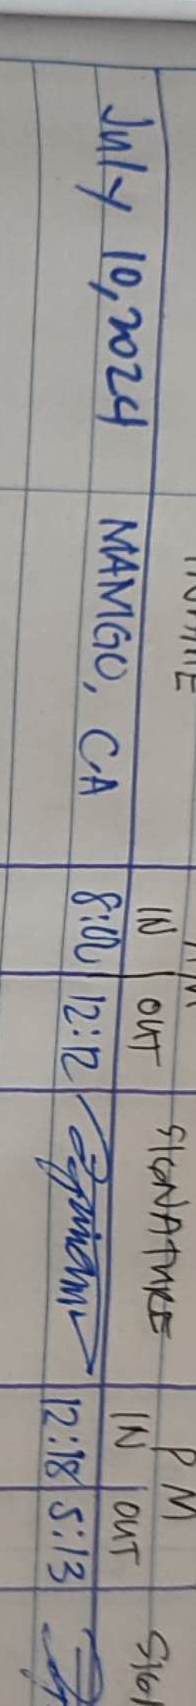 NAME AM SIGNATURE PM
IN OUT IN OUT
July 10, 2024 MAMGO, CA 8:00 12:12 12:18 5:13